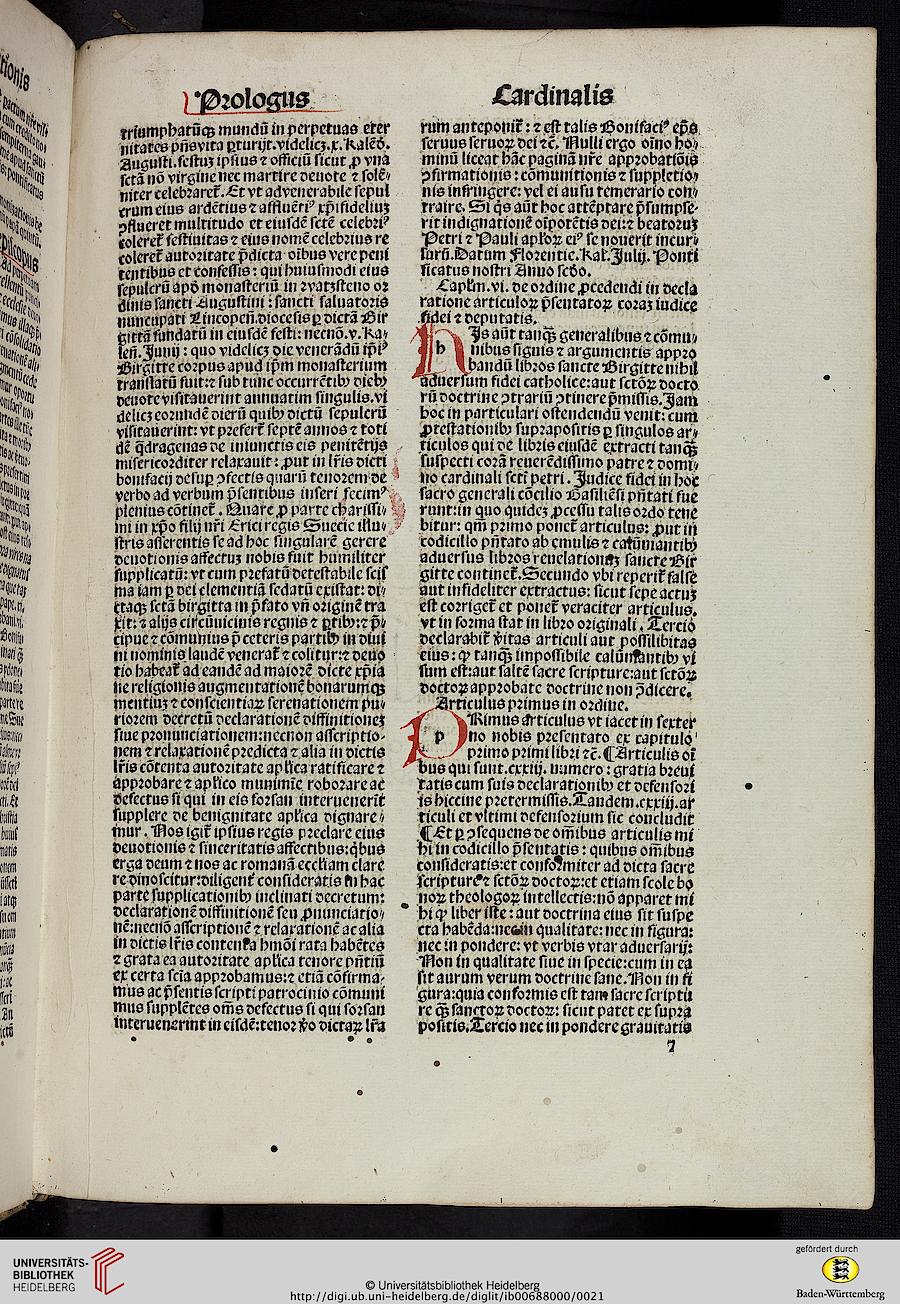 Prologus
Cardinalis
triumphatūqȝ mundū in perpetuas eter
nitates pn̄s vita ꝑturiȷt. videlicȝ .x. Kalēd̄.
Augusti. festuȝ ipsius ⁊ officiū sicut ꝓ vna
sctā nō virgine nec martire deuote ⁊ solē⸗
niter celebraret̄. Et vt ad venerabile sepul
crum eius ardētius ⁊ affluētiꝰ xp̄ifideliuȝ
ↄflueret multitudo et eiusdē sctē celebriꝰ
coleret̄ festiuitas ⁊ eius nomē celebrius re
coleret̄ autoritate p̄dicta oībus vere peni
tentibus et confessis : qui huiusmodi eius
sepulcrū apō monasteriū in watzsteno or
dinis sancti Augustini : sancti saluatoris
nuncupati Lincopeñ. diocesis ꝑ dictā Bir
gittā fundatū in eiusdē festi: necnō .v. Ka⸗
leñ. Junij : quo videlicȝ die venerādū ip̄iꝰ
Birgitte corpus apud ip̄m monasterium
translatū fuit: ⁊ sub tunc occurrētibȝ diebȝ
deuote visitauerint annuatim singulis. vi
delicȝ eorundē dierū quibȝ dictū sepulcrū
visitauerint: vt prefert̄ septē annos ⁊ toti
dē q̄dragenas de iniunctis eis penitētijs
misericorditer relaxauit : ꝓut in lr̄is dicti
bonifacij desuꝑ ↄfectis quarū tenorem de
verbo ad verbum p̄sentibus inseri fecimꝰ
plenius cōtinet̄ . Quare ꝓ parte charissi⸗
mi in xp̄o filij nr̄i Erici regis Suecie illu⸗
stris asserentis se ad hoc singularē gerere
deuotionis affectuȝ nobis fuit humiliter
supplicatū: vt cum prefatū detestabile scis
ma iam ꝑ dei clementiā sedatū existat: di⸗
ctaqȝ sctā birgitta in p̄fato vn̄ originē tra
xit: ⁊ alijs circūuicinis regnis ⁊ ꝑtibȝ: ⁊ p̄⸗
cipue ⁊ cōmunius p̄ ceteris partibȝ in diui
ni nominis laudē venerat̄ ⁊ colitur: ⁊ deuo
tio habeat̄ ad eandē ad maiorē dicte xp̄ia
ne religionis augmentationē bonarumqȝ
mentiuȝ ⁊ conscientiaꝝ serenationem pu⸗
riorem decretū declarationē diffinitioneȝ
siue pronunciationem: necnon asscriptio⸗
nem ⁊ relaxationē predicta ⁊ alia in dictis
lr̄is cōtenta autoritate apl̄ica ratificare ⁊
approbare ⁊ apl̄ico munimīe roborare ac
defectus si qui in eis forsan interuenerīt
supplere de benignitate apl̄ica dignare⸗
mur . Nos igit̄ ipsius regis preclare eius
deuotionis ⁊ sinceritatis affectibus: qͥbus
erga deum ⁊ nos ac romanā eccl̄iam clare
re dinoscitur: diligent̄ consideratis in hac
parte supplicationibȝ inclinati decretum:
declarationē diffinitionē seu ꝓnunciatio⸗
nē: necnō asscriptionē ⁊ relaxationē ac alia
in dictis lr̄is contenta hm̄oi rata habētes
⁊ grata ea autoritate apl̄ica tenore pn̄tiū
ex certa scīa approbamus: ⁊ etiā cōfirma⸗
mus ac p̄sentis scripti patrocinio cōmuni
mus supplētes om̄s defectus si qui forsan
interuenerint in eisdē: tenor ꝟo dictaꝝ lr̄a
rum anteponit̄ : ⁊ est talis Bonifaciꝰ ep̄s
seruus seruoꝝ dei ⁊c̄. Nulli ergo oīno ho⸗
minū liceat hāc paginā nr̄e approbatiōis
ↄfirmationis : cōmunitionis ⁊ suppletio⸗
nis infringere: vel ei ausu temerario con⸗
traire. Si qͥs aūt hoc attēptare p̄sumpse⸗
rit indignationē oīpotētis dei: ⁊ beatoruȝ
Petri ⁊ Pauli apl̄oꝝ eiꝰ se nouerit incur⸗
surū. Datum Florentie. Kal̄. Julij. Ponti
ficatus nostri Anno scd̄o.
Caplm̄. vi. de ordine ꝓcedendi in decla
ratione articuloꝝ p̄sentatoꝝ coraȝ iudice
fidei ⁊ deputatis.
h
Is aūt tanqȝ generalibus ⁊ cōmu⸗
nibus signis ⁊ argumentis appro
bandū libros sancte Birgitte nihil
aduersum fidei catholice: aut sctōꝝ docto
rū doctrine ↄtrariū ↄtinere p̄missis. Jam
hoc in particulari ostendendū venit: cum
ꝓtestationibȝ suprapositis ꝑ singulos ar⸗
ticulos qui de libris eiusdē extracti tanqȝ
suspecti corā reuerēdissimo patre ⁊ domi⸗
no cardinali scti petri . Iudice fidei in hoc
sacro generali cōcilio Basiliēsi pn̄tati fue
runt: in quo quidcȝ ꝓcessu talis ordo tene
bitur: qm̄ primo ponet̄ articulus: ꝓut in
codicillo pn̄tato ab emulis ⁊ calūniantibȝ
aduersus libros reuelationuȝ sancte Bir
gitte continet̄. Secundo vbi reperit̄ false
aut infideliter extractus: sicut sepe actuȝ
est corriget̄ et ponet̄ veraciter articulus.
vt in forma stat in libro originali . Tercio
declarabit̄ ꝟitas articuli aut possibilitas
eius : ꝙ tanqȝ impossibile calūmantibȝ vi
sum est: aut saltē sacre scripture: aut sctōꝝ
doctoꝝ approbate doctrine non p̄dicere.
Articulus primus in ordine.
p
PRimus articulus vt iacet in sexter
no nobis presentato ex capitulo
primo primi libri ⁊c̄. ¶ Articulis oī
bus qui sunt. cxxiij. numero : gratia breui
tatis cum suis declarationibȝ et defensori
is hiccine pretermissis. Tandem. cxxiij. ar
ticuli et vltimi defensorium sic concludit
¶ Et ꝑ ↄsequens de om̄ibus articulis mi
hi in codicillo p̄sentatis : quibus om̄ibus
consideratis: et conformiter ad dicta sacre
scripture ⁊ sctōꝝ doctoꝝ: et etiam scole bo
noꝝ theologoꝝ intellectis: nō apparet mi
hi ꝙ liber iste : aut doctrina eius sit suspe
cta habēda: nec in qualitate: nec in figura:
nec in pondere: vt verbis vtar aduersarij:
Non in qualitate siue in specie: cum in ea
sit aurum verum doctrine sane. Non in fi
gura: quia conformis est tam sacre scriptu
re qȝ sanctoꝝ doctoꝝ: sicut patet ex supra
positis. Tercio nec in pondere grauitatis
7
UNIVERSITÄTS-
BIBLIOTHEK
HEIDELBERG
© Universitätsbibliothek Heidelberg
http://digi.ub.uni-heidelberg.de/diglit/ib00688000/0021
gefördert durch
Baden-Württemberg